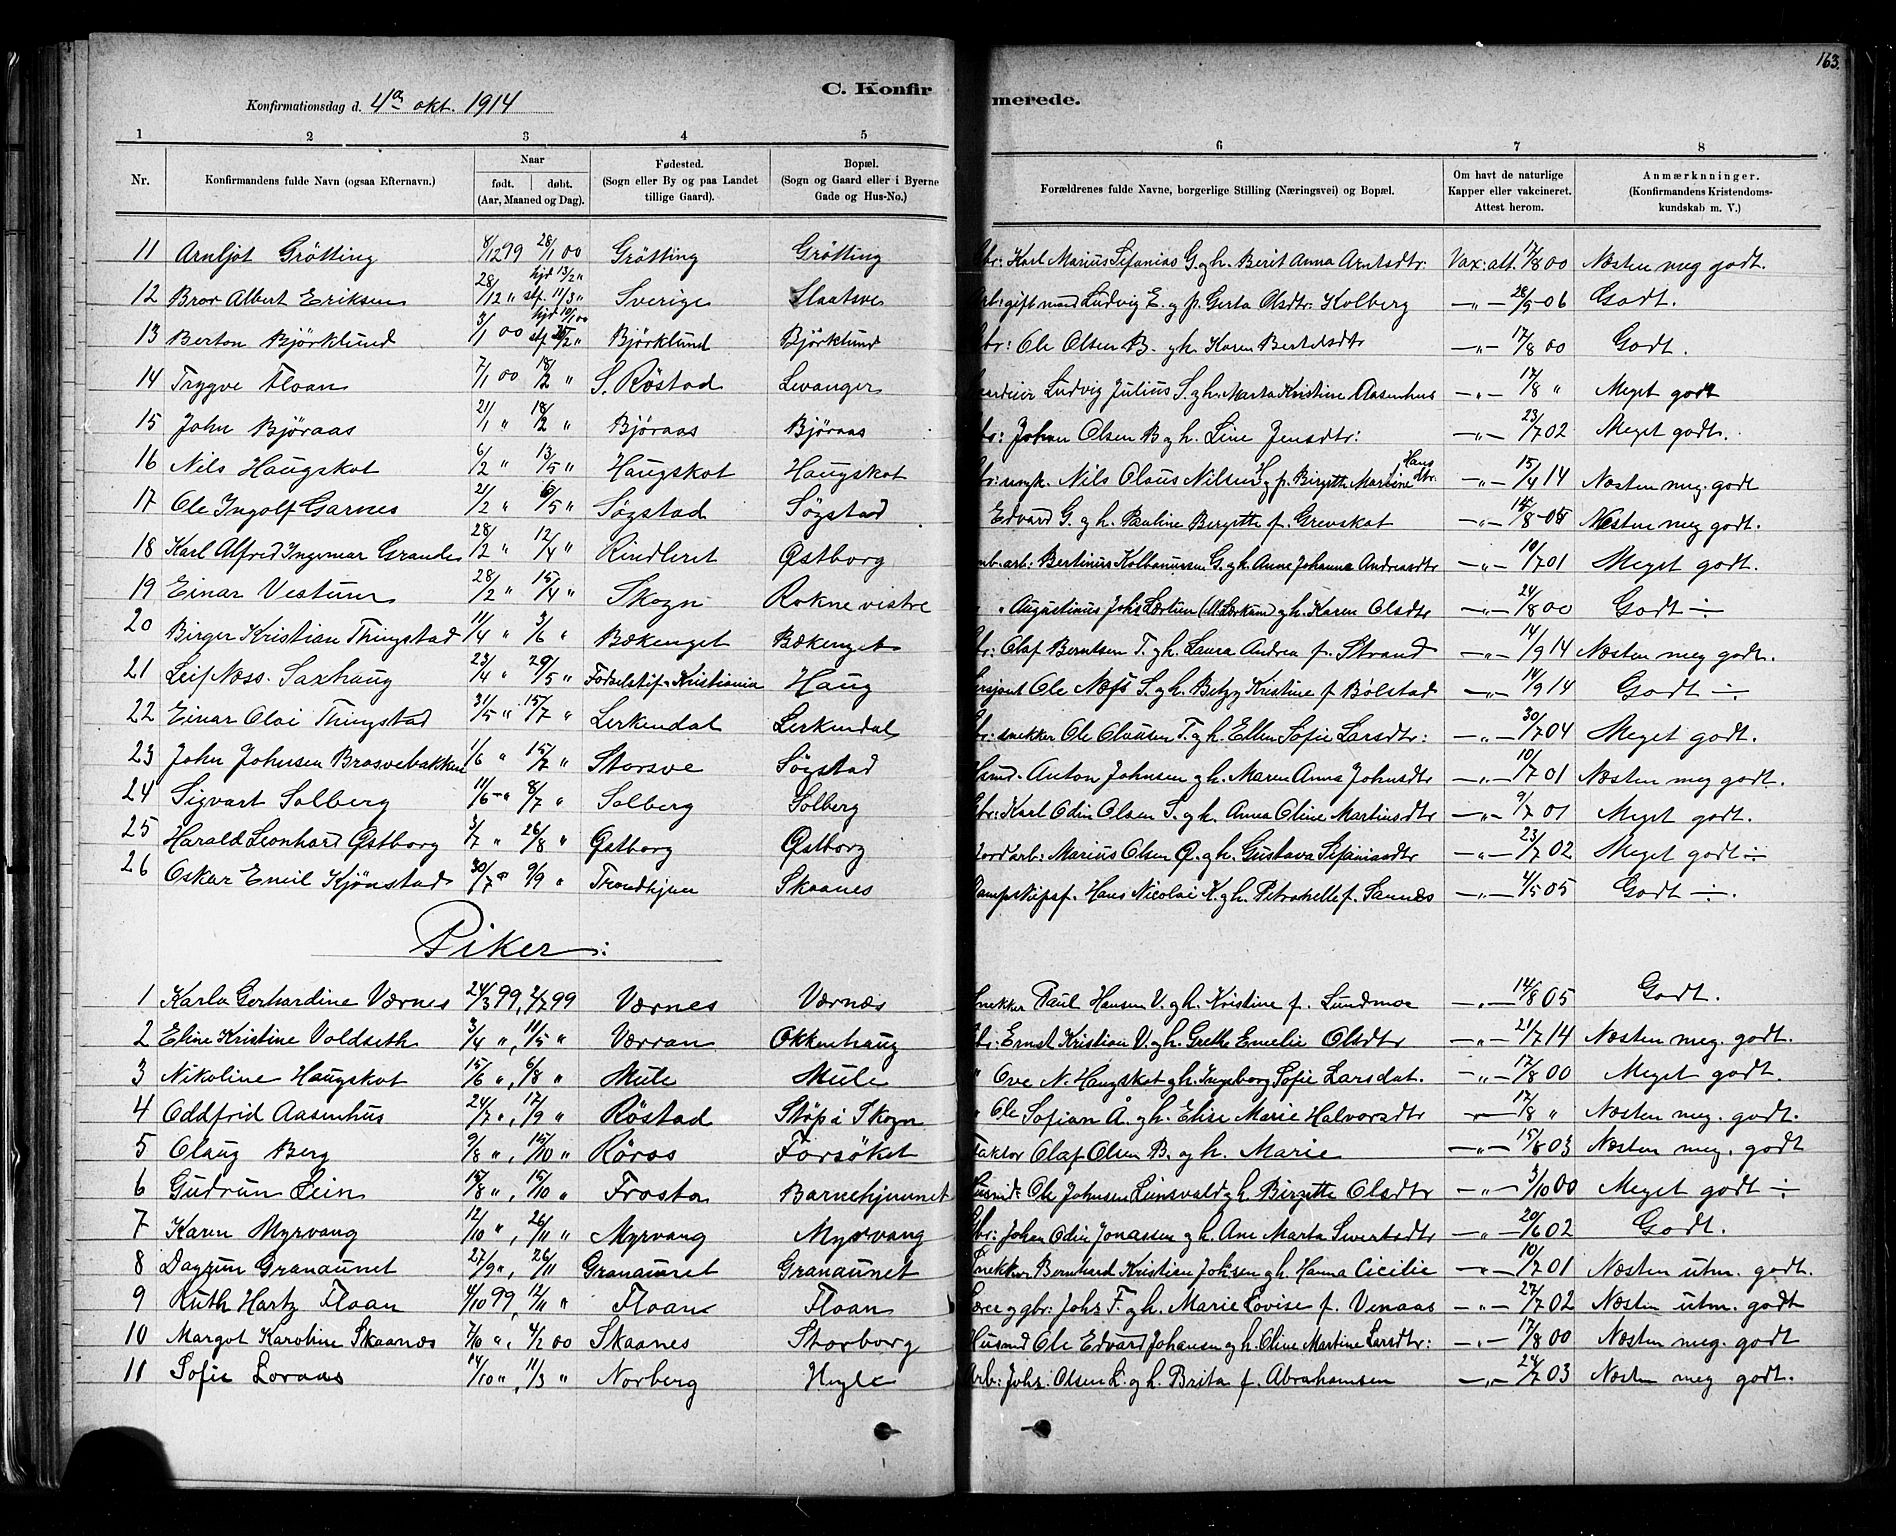 163.
C. Konfirmerede.
Konfirmationsdag d. 4de okt. 1914
1 2 3 4 5 6 7 8
Nr. Konfirmandens fulde Navn (ogsaa Efternavn). Naar født. døbt. (Aar, Maaned og Dag). Fødested. (Sogn eller By og paa Landet tillige Gaard). Bopæl. (Sogn og Gaard eller i Byerne Gade og Hus-No.) Forældrenes fulde Navne, borgerlige Stilling (Næringsvei) og Bopæl. Om havt de naturlige Kapper eller vakcineret. Attest herom. Anmærkninger. (Konfirmandens Kristendomskundskab m. V.)
11 Arnljot Grötting 8/12 99 28/1 00 Grötting Grötting Gbr: Karl Marius Sefanias G. og h. Berit Anna Arntsdtr. Vax: att. 17/8 00 Næsten meg godt.
12 Bror Albert Eriksen 28/12 " hjd 13/2 " stf. 11/3 " Sverige Slaatsve Arb: gift mand Ludvig E. og p. Gerta Olsdtr. Kolberg —"— 28/9 06 Godt.
13 Berton Björklund 3/1 00 hjd 10/1 00 stf 25/2 " Björklund Björklund Gbr: Ole Olsen B. og h. Karen Bertelsdtr —"— 17/8 00 Godt.
14 Trygve Floan 7/1 00 18/2 " S. Röstad Levanger Gaardeier Ludvig Julius S. og h. Marta Kristine Aasenhus —"— 17/8 " Meget godt
15 John Björaas 21/1 " 18/2 " Björaas Björaas Gbr: Johan Olsen B og h. Line Jensdtr: —"— 23/7 02 Meget godt.
16 Nils Haugskot 6/2 " 13/5 " Haugskot Haugskot Gbr: ungk. Nils Olaus Nilsen H. og p. Birgitte Martine Hansdtr. —"— 15/4 14 Næsten meg. godt
17 Ole Ingolf Garnes 21/2 " 6/5 " Søgstad Søgstad Edvard G. og h. Pauline Bergitte f. Grevskot —"— 14/8 05 Næsten meg godt.
18 Karl Alfred Ingemar Grande 28/2 " 12/4 " Rindleret Østborg arb: Bertinus Kolbanussen G. og h. Anne Johanna Andreasdtr —"— 10/7 01 Meget godt.
19 Einar Vestrum 28/2 " 15/4 " Skogn Rokne vistre " Augustinus Johs Lærtun og h. Karen Olsdtr —"— 24/8 00 Godt ÷
20 Birger Kristian Thingstad 11/4 " 3/6 " Bækenget Bækenget Gbr: Olaf Berntsen T. og h. Laura Andrea f. Strand —"— 14/9 14 Næsten meg godt.
21 Leif Næss Saxhaug 23/4 " 29/5 " Födselstif. Kristiania Haug Sersjant Ole Næss S. og h. Betzy Kristine f Bölstad —"— 14/9 14 Godt ÷
22 Einar Olai Thingstad 31/5 " 15/7 " Lerkendal Lerkendal Gbr: snekker Ole Olausen T. og h. Ellen Sofie Larsdtr: —"— 30/7 04 Meget godt.
23 John Johnsen Brosvebakken 1/6 " 15/7 " Storsve Søgstad Husmd. Anton Johnsen og h. Maren Anna Johnsdtr —"— 10/7 01 Næsten meg godt.
24 Sigvart Solberg 11/6 " 8/7 " Solberg Solberg Gbr: Karl Odin Olsen S. og h. Anna Oline Martinsdtr —"— 9/7 01 Meget godt.
25 Harald Leonhard Østborg 3/7 " 26/8 " Østborg Østborg Jordarb: Marius Olsen Ø. og h. Gustava Sefaniasdtr —"— 23/7 02 Meget godt ÷
26 Oskar Emil Kjönstad 30/7 " 9/9 " Trondhjem Skaanes Dampskipsf. Hans Nicolai K. og h. Petronelle f. Sannes —"— 4/5 05 Godt ÷.
Piker:
1 Karla Gerhardine Værnes 24/3 99, 2/7 99 Værnes Værnæs Snekker Paul Hansen V. og h. Kristine f. Lundmoe —"— 14/8 05 Godt.
2 Eline Kristine Voldseth 3/4 ", 11/5 " Værran Okkenhaug Gbr: Ernst Kristian V. og h. Grethe Emelie Olsdtr —"— 21/7 14 Næsten meg. godt.
3 Nikoline Haugskot 15/6 ", 6/8 " Mule Mule " Ove N. Haugskot og h. Ingeborg Sofie Larsdat. —"— 17/8 00 Meget godt.
4 Oddfrid Aasenhus 24/7 ", 17/9 " Röstad Stöp i Skogn " Ole Sofian Å. og h. Elise Marie Halvorsdtr —"— 17/8 " Næsten meg. godt.
5 Olaug Berg 9/8 ", 15/10 " Röros Forsöket Faktor Olaf Olsen B. og h. Marie —"— 15/8 03 Næsten meg. godt
6 Gudrun Lein 15/8 ", 15/10 " Frosta Barnehjemmet Husmd: Ole Johnsen Leinsvald og h. Birgitte Olsdtr —"— 3/10 00 Meget godt ÷
7 Karen Myrvang 12/10 ", 26/11 " Myrvang Myrvang Gbr: Johan Odin Jonassen og h. Ane Marta Sivertsdtr —"— 20/6 02 Godt.
8 Dagrun Granaunet 27/9 ", 26/11 Granaunet Granaunet Snekker Bernhard Kristian Johsen og h. Hanna Cicilie —"— 10/7 01 Næsten utm. godt.
9 Ruth Hartz Floan 4/10 99, 12/11 " Floan Floan Lærer og gbr: Johs F. og h. Marie Lovise f. Venaas —"— 27/7 02 Næsten utm. godt
10 Margot Karoline Skaanæs 7/10 ", 4/2 00 Skaanes Storborg Husmd Ole Edvard Johansen og h. Oline Martine Larsdtr: —"— 17/8 00 Næsten meg. godt
11 Sofie Loraas 14/10 ", 11/3 " Norberg Hegle Arb: Johs. Olsen L. og h. Brita f. Abrahamsen —"— 24/7 03 Næsten meg godt.